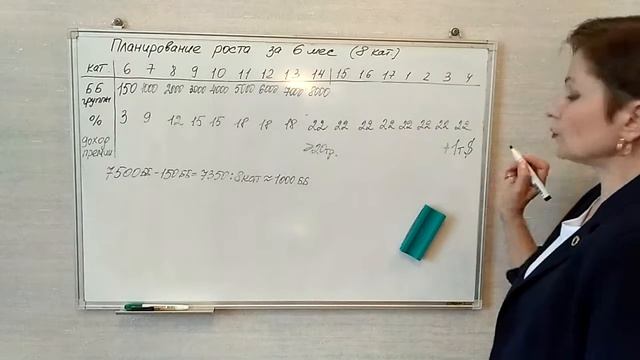 Планирование роста за 6 мес (8 кат)
кат 6 7 8 9 10 11 12 13 14 15 16 17 1 2 3 4
ББ группы 150 1000 2000 3000 4000 5000 6000 7000 8000
% 3 9 12 15 15 18 18 18 22 22 22 22 22 22 22 22
доход премии ≥20тр. +1т$
7500ББ-150ББ=7350:8кат≈1000ББ